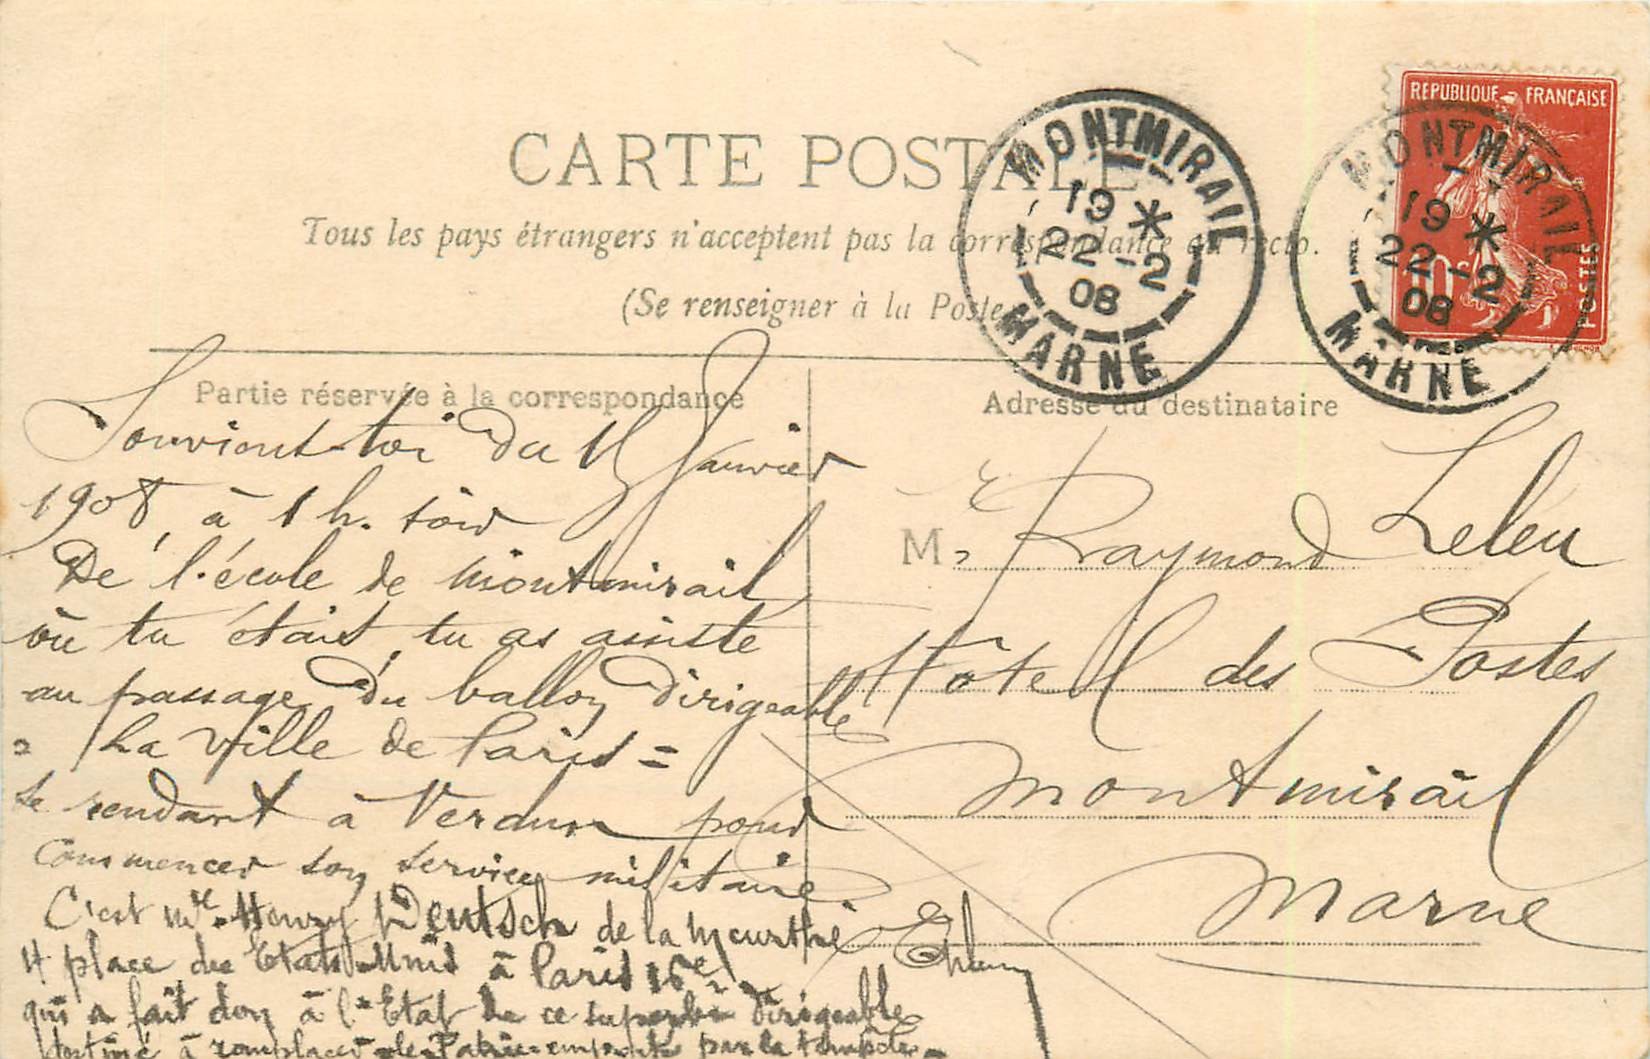 CARTE POSTALE
Tous les pays étrangers n'acceptent pas la correspondance au recto.
(Se renseigner à la Poste
MONTMIRAIL
19 *
22-2
08
MARNE
REPUBLIQUE FRANÇAISE
10c
POSTES
MONTMIRAIL
19 *
22-2
08
MARNE
Partie réservée à la correspondance
Souvient-toi du 15 Janvier
1908, à 1 h. soir
De l'école de Montmirail
où tu étais, tu as assisté
au passage du ballon dirigeable
= La Ville de Paris =
se rendant à Verdun pour
commencer son service militaire
C'est Mr Henry Deutsch de la Meurthe
4 place des Etats-Unis à Paris 16e
qui a fait don à l'Etat de ce superbe dirigeable
destiné à remplacer le Patrie emporté par la tempête
Adresse du destinataire
Mr Raymond Leleu
Hôtel des Postes
Montmirail
Marne